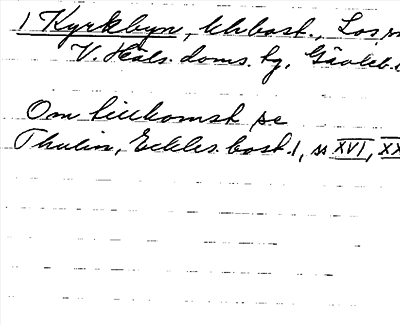 1 Kyrkbyn, Khbost., Los, s
V. Häls. doms. hg, Gävleb.
Om tillkomst se
Thulin, Eckles. bost. 1, ss XVI, XX